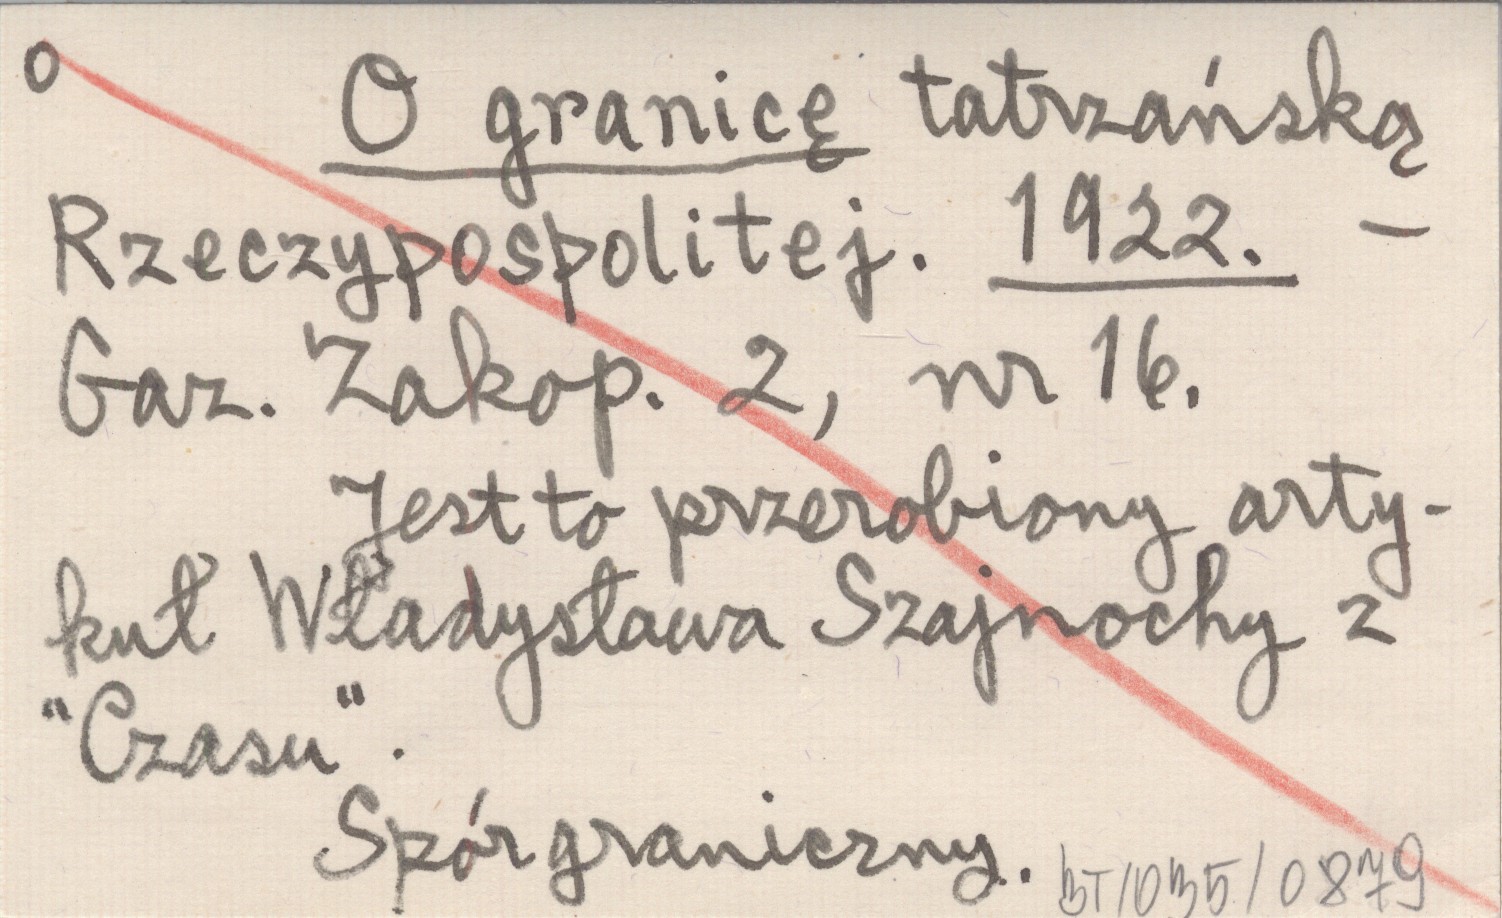 O O granicę tatrzańską
Rzeczypospolitej. 1922. –
Gaz. Zakop. 2, nr 16.
Jest to przerobiony arty-
kuł Władysława Szajnochy z
"Czasu".
Spór graniczny.
BT/035/0879